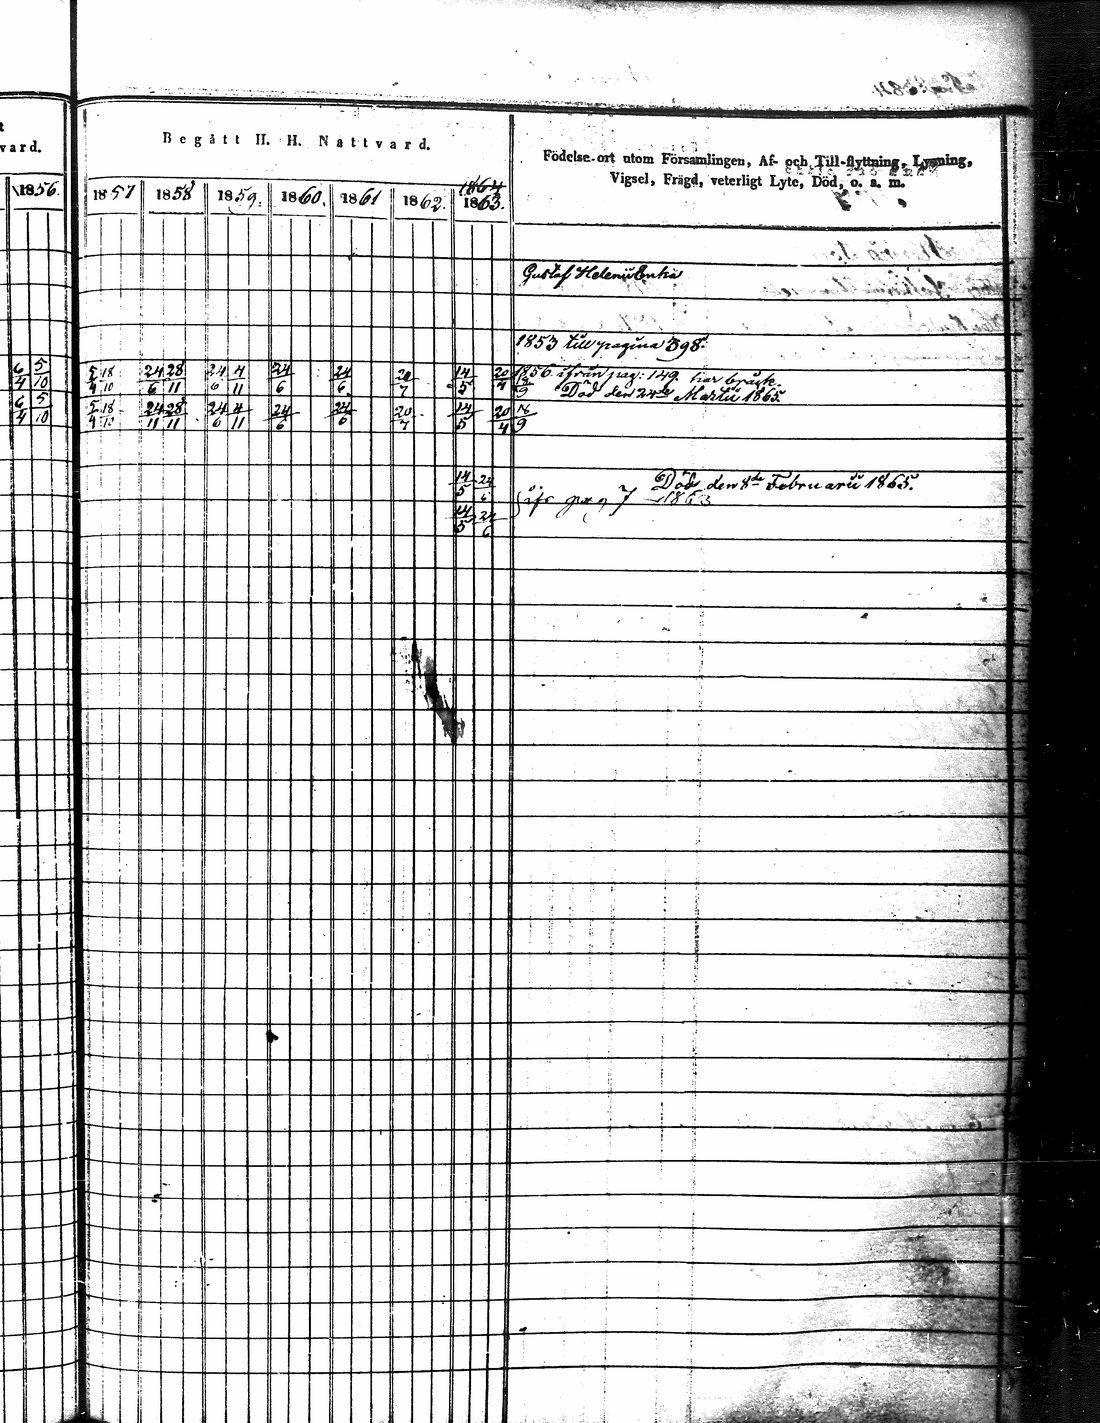 vard.
Begått H. H. Nattvard.
Födelse-ort utom Församlingen, Af- och Till-flyttning, Lysning,
Vigsel, Frägd, veterligt Lyte, Död, o. s. m.
1864
1856. 1857 1858 1859. 1860. 1861 1862. 1863.
Gustaf Helenii Enka
1853 till pagina 398.
6/4 5/10 5/4 18/10 24/6 28/11 24/6 4/11 24/6 24/6 20/7 14/5 20/4 1856 ifrån pag: 149. har bråck.
Död den 24de Martii 1865.
6/4 5/10 5/4 18/10 24/11 28/11 24/6 4/11 24/6 24/6 20/7 14/5 20/4 18/9
14/5 24/6 Död den 8de Februarii 1865.
ifr pag 7 1863
14/5 24/6